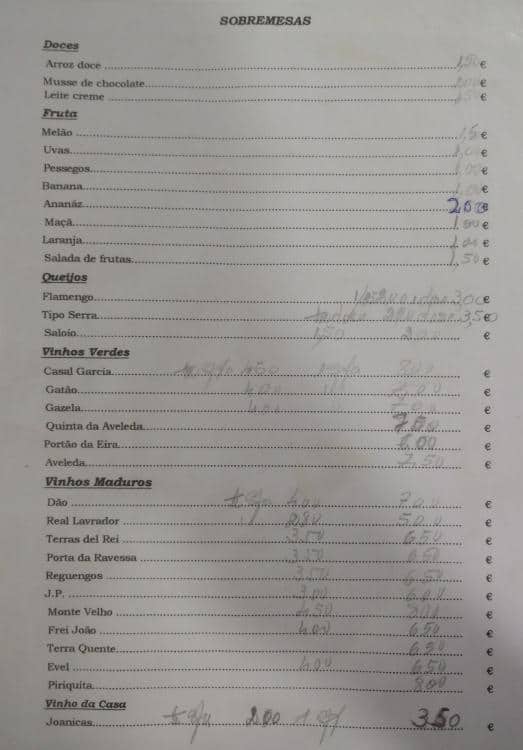 SOBREMESAS
Doces
Arroz doce 1,50 €
Musse de chocolate €
Leite creme €
Fruta
Melão 1,5 €
Uvas €
Pessegos 1,00 €
Banana 1,00 €
Ananáz 2,00 €
Maçã 1,00 €
Laranja 1,00 €
Salada de frutas 1,50 €
Queijos
Flamengo 3,00 €
Tipo Serra 3,50 €
Saloio 1,50 2,00 €
Vinhos Verdes
Casal Garcia €
Gatão 4,00 €
Gazela €
Quinta da Aveleda €
Portão da Eira €
Aveleda 7,50 €
Vinhos Maduros
Dão 4,00 7,00 €
Real Lavrador 2,80 5,00 €
Terras del Rei 3,50 6,50 €
Porta da Ravessa 3,50 6,50 €
Reguengos 3,50 6,50 €
J.P. 3,00 6,00 €
Monte Velho 4,50 €
Frei João 4,00 6,50 €
Terra Quente 6,50 €
Evel 4,00 6,50 €
Piriquita 8,00 €
Vinho da Casa
Joanicas 2,00 3,50 €